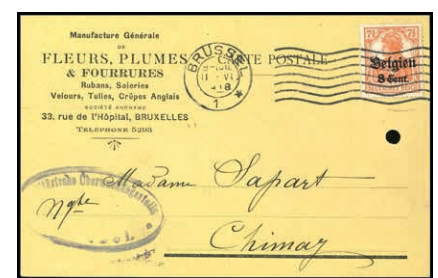 Manufacture Générale
DE
FLEURS, PLUMES
& FOURRURES
Rubans, Soieries
Velours, Tulles, Crêpes Anglais
SOCIÉTÉ ANONYME
33. rue de l'Hôpital, BRUXELLES
TELEPHONE 5293
CARTE POSTALE
BRUSSEL
1
7½ 7½
Belgien
8 Cent.
Madame Sapart
Ngte
Chimay